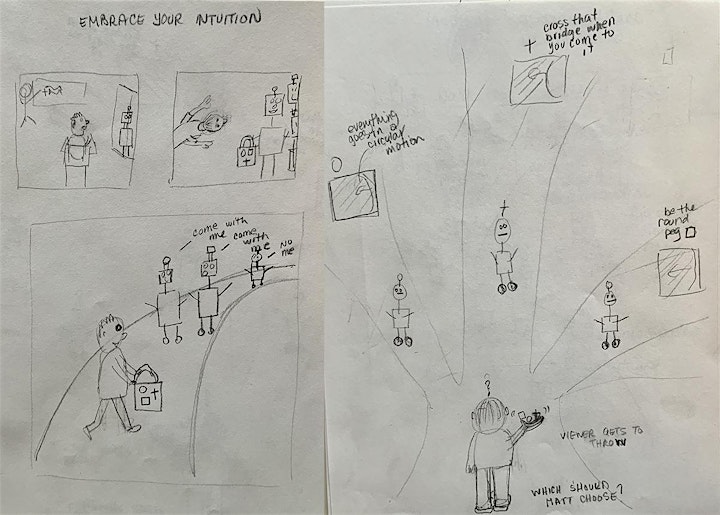 EMBRACE YOUR INTUITION
come with
me
come
with
me
NO
me
cross that
bridge when
you come to
it
everything
goes in a
circular
motion
be the
round
peg
?
VIEWER GETS TO
THROW
WHICH SHOULD
MATT CHOOSE?